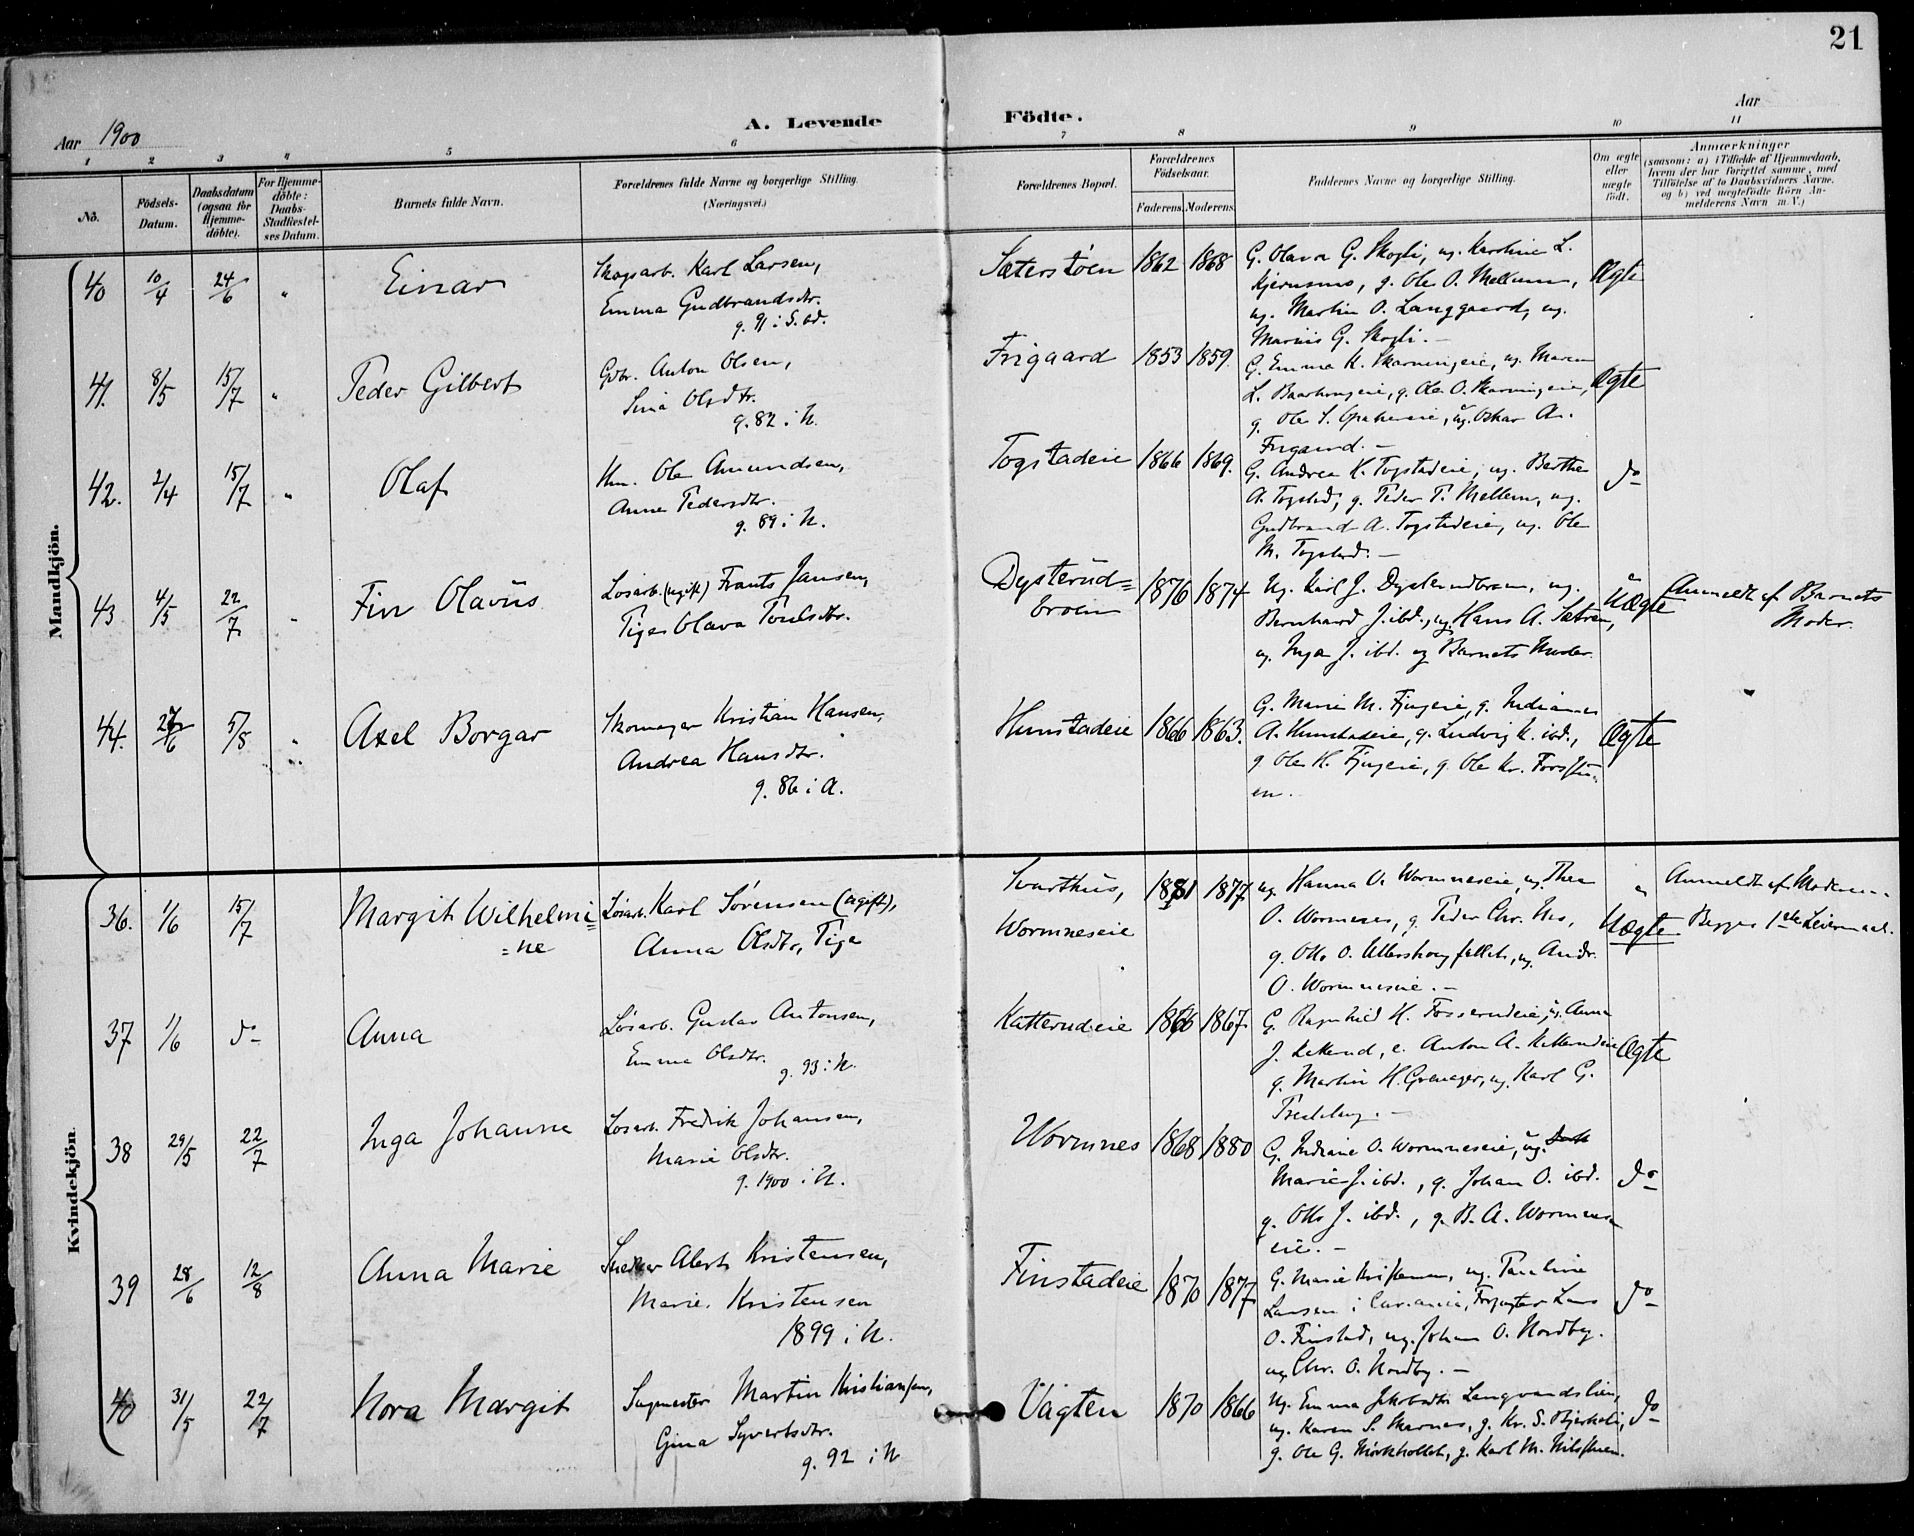 21
Aar 1900
A. Levende Födte.
Aar
1 2 3 4 5 6 7 8 9 10 11
Nô.
Födsels-Datum.
Daabsdatum (ogsaa for Hjemme-döbte).
For Hjemme-döbte: Daabs-Stadfæstel-ses Datum.
Barnets fulde Navn.
Forældrenes fulde Navne og borgerlige Stilling.
(Næringsvei.)
Forældrenes Bopæl.
Forældrenes Födselsaar.
Faderens. Moderens.
Faddernes Navne og borgerlige Stilling.
Om ægte eller uægte födt.
Anmærkninger
(saasom: a) i Tilfælde af Hjemmedaab,
hvem der har forrettet samme, med
Tilföielse af to Daabsvidners Navne,
og b) ved uegtefödte Börn An-
melderens Navn m. V.)
Mandkjön.
40 10/4 24/6 " Einar
Skogsarb. Karl Larsen,
Emma Gudbrandsdtr.
g. 91 i S. Od.
Sæterstøen 1862 1868
G. Olava G. Skogli, ug. Karoline L.
Kjernsmo, g. Ole O. Mellum,
ug. Martin O. Langgaard, ug.
Marius G. Skogli. —
Ægte
41. 8/5 15/7 " Peder Gilbert
Gbr. Anton Olsen,
Sina Olsdtr.
g. 82 i N.
Friggaard 1853 1859.
G. Emma K. Skarningeie, ug. Maren
L. g. Ole O. Skarningeie,
g. Ole S. ug. Oskar An.
Frigaard. —
Ægte
42. 2/4 15/7 " Olaf
Hm. Ole Amundsen,
Anne Pedersdtr.
g. 89 i N.
Togstadeie 1866 1869.
G. Andrea K. Togstadeie, ug. Berthe
A. Togstad, g. Peder P. Mellem, ug.
Gudbrand A. Togstadeie, ug. Ole
M. Togstad. —
do
43 4/5 22/7 " Finn Olavus
Løsarb. (ugift) Frants Jansen,
Pigen Olava Poulsdtr.
Dysterud=
broen 1876 1874
Ug. Karl J. Dysterudbroen, ug.
Bernhard J. ibd., ug. Hans A. Sætren,
ug. Inga J. ibd. og Barnets Moder.
Uægte
Anmeldt af Barnets
Moder.
44. 27/6 5/8 " Axel Borgar
Skomager Kristian Hansen,
Andrea Hansdtr.
g. 86 i A.
Hunstadeie 1866 1863.
G. Marie M. Fjugeie, g. Indianna
A. Hunstadeie, g. Ludvig K. ibd.,
g. Ole H. Fjugeie, g. Ole Kr.
en.
Ægte
Kvindekjön
36. 1/6 15/7 Margit Wilhelmi=
=ne
Løsarb. Karl Sørensen (ugift),
Anna Olsdtr, Pige
Svarthus,
Wormneseie
1881 1877
ug. Hanna O. Wormneseie, ug. Thea
O. Wormnes, g. Peder Chr. Nes,
g. Otto O. Ullershovfallet, ug. Andr.
O. Wormneseie. —
Uægte
Anmeldt af Moderen.
Begges 1ste Leiermaal.
37 1/6 do Anna
Løsarb. Gustav Antonsen,
Emma Olsdtr.
g. 93 i N.
Katterudeie 1866 1867
G. Ragnhild H. Fosserudeie, ug. Anna
J. Katterud, e. Anton A. Katterudeie
g. Martin H. Grenager, ug. Karl G.
Ægte
38 29/5 22/7 Inga Johanne
Løsarb. Fredrik Johansen,
Marie Olsdtr.
g. 1900 i N.
Wormnes 1868 1880
G. Indiane O. Wormneseie, ug.
Marie J. ibd., g. Johan O. ibd.
g. Otto J. ibd., g. B. A. Wormnes
eie. —
do
39 28/6 12/8 Anna Marie
Snedker Albert Kristensen,
Marie Kristensen
1899 i N.
Finstadeie 1870 1877
G. Marie Kristensen, ug. Pauline
Larsen i Forpagter Lars
O. Finstad, ug. Johan O. Nordby.
ug. Chr. O. Nordby. —
do
40 31/5 22/7 Nora Margit
Sagmester Martin Kristiansen,
Gina Syvertsdtr.
g. 92 i N
Vagten 1870 1866
Ug. Emma Jakobsdtr Langvandslien,
ug. Karen S. Skarnes, g. Kr. S. Bjerkeli,
g. Ole G. Mørkhollet, g. Karl M.
do